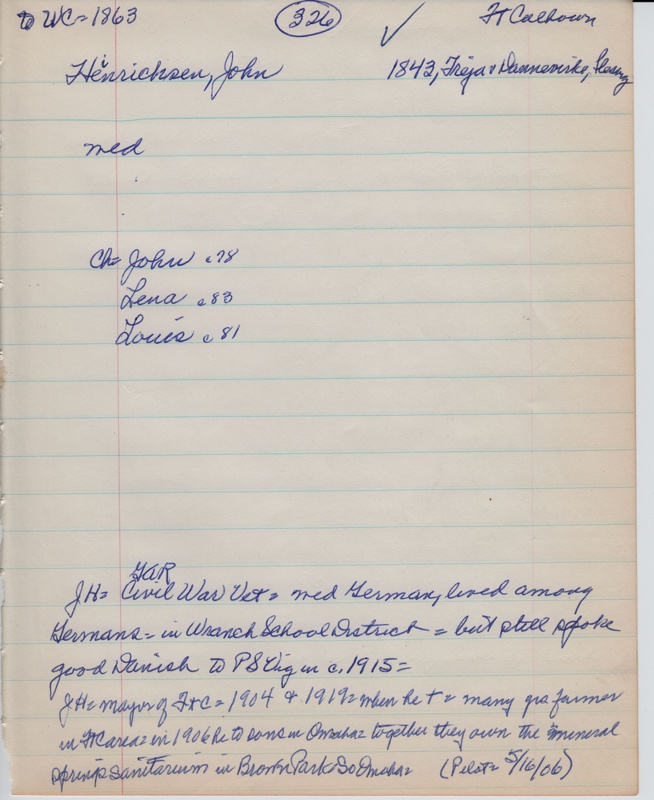 to WC = 1863 326 ✓ Ft Calhoun
Henricksen, John 1843, Treja v Dannevirke, Slesvig
med
Ch = John c78
Lena c83
Louis c81
GAR
JH = Civil War Vet = med German, lived among
Germans = in Wranch School District = but still spoke
good Danish to PS Vig in c. 1915 =
JH = mayor of FtC = 1904 & 1919 = when he + = many yrs farmer
in FtC area = in 1906 he to sons in Omaha = together they own the mineral
springs sanitarium in Brown Park So Omaha = (Pilot = 5/16/06)